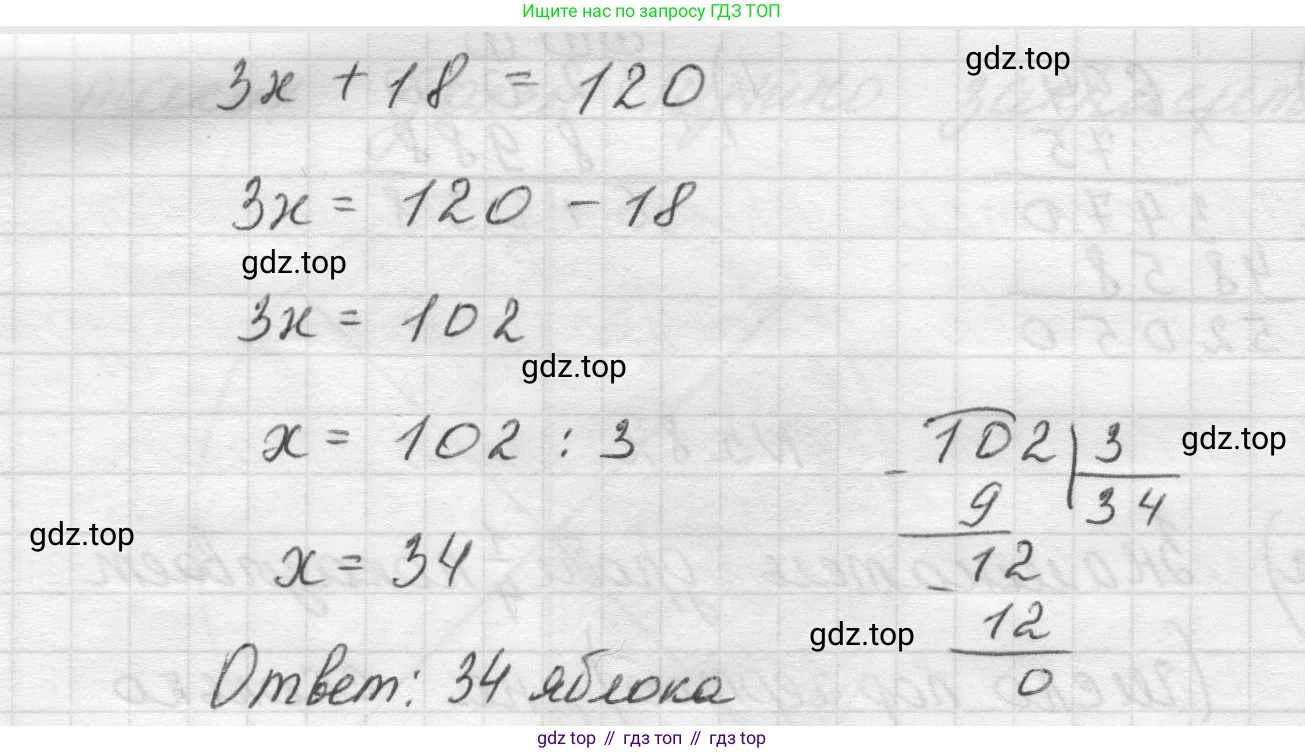 Ищите нас по запросу ГДЗ ТОП
gdz.top
3x + 18 = 120
3x = 120 - 18
gdz.top
3x = 102
gdz.top
x = 102 : 3
102 | 3
gdz.top
- 9
34
x = 34
gdz.top
12
- 12
gdz.top
0
Ответ: 34 яблока
gdz top // гдз топ // gdz top